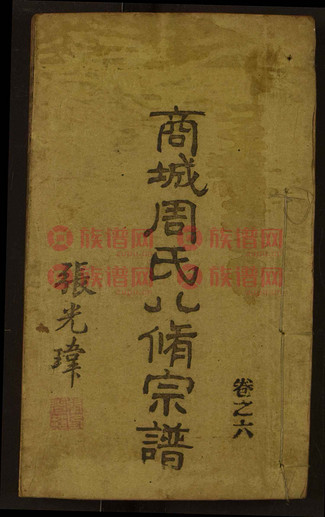 商城周氏八脩宗譜
卷之六
張光瑋
族谱网 族谱网
族谱网 族谱网